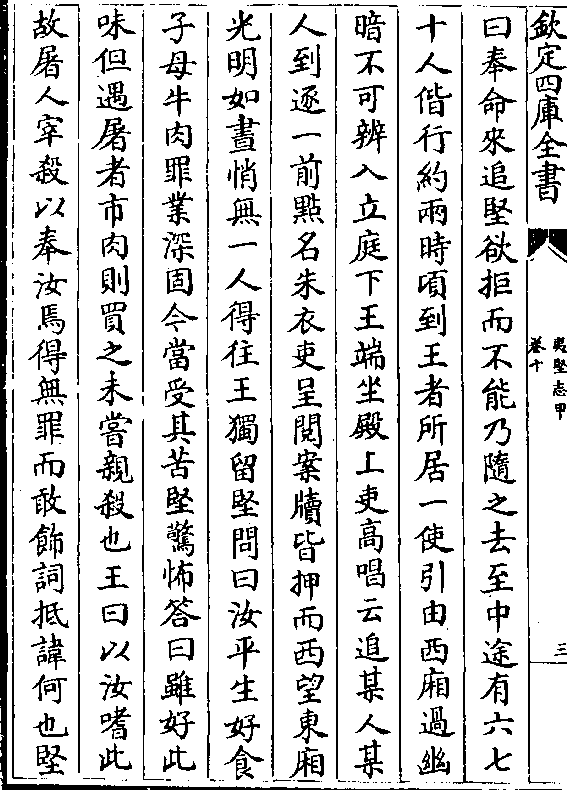 欽定四庫全書
夷堅志甲
卷十
三
曰奉命來追堅欲拒而不能乃隨之去至中途有六七
十人偕行約兩時頃到王者所居一使引由西廂過幽
暗不可辨入立庭下王端坐殿上吏高唱云追某人某
人到逐一前點名朱衣吏呈閱案牘皆押而西望東廂
光明如晝悄無一人得往王獨留堅問曰汝平生好食
子母牛肉罪業深固今當受其苦堅驚怖答曰雖好此
味但遇屠者市肉則買之未嘗親殺也王曰以汝嗜此
故屠人宰殺以奉汝焉得無罪而敢飾詞抵諱何也堅